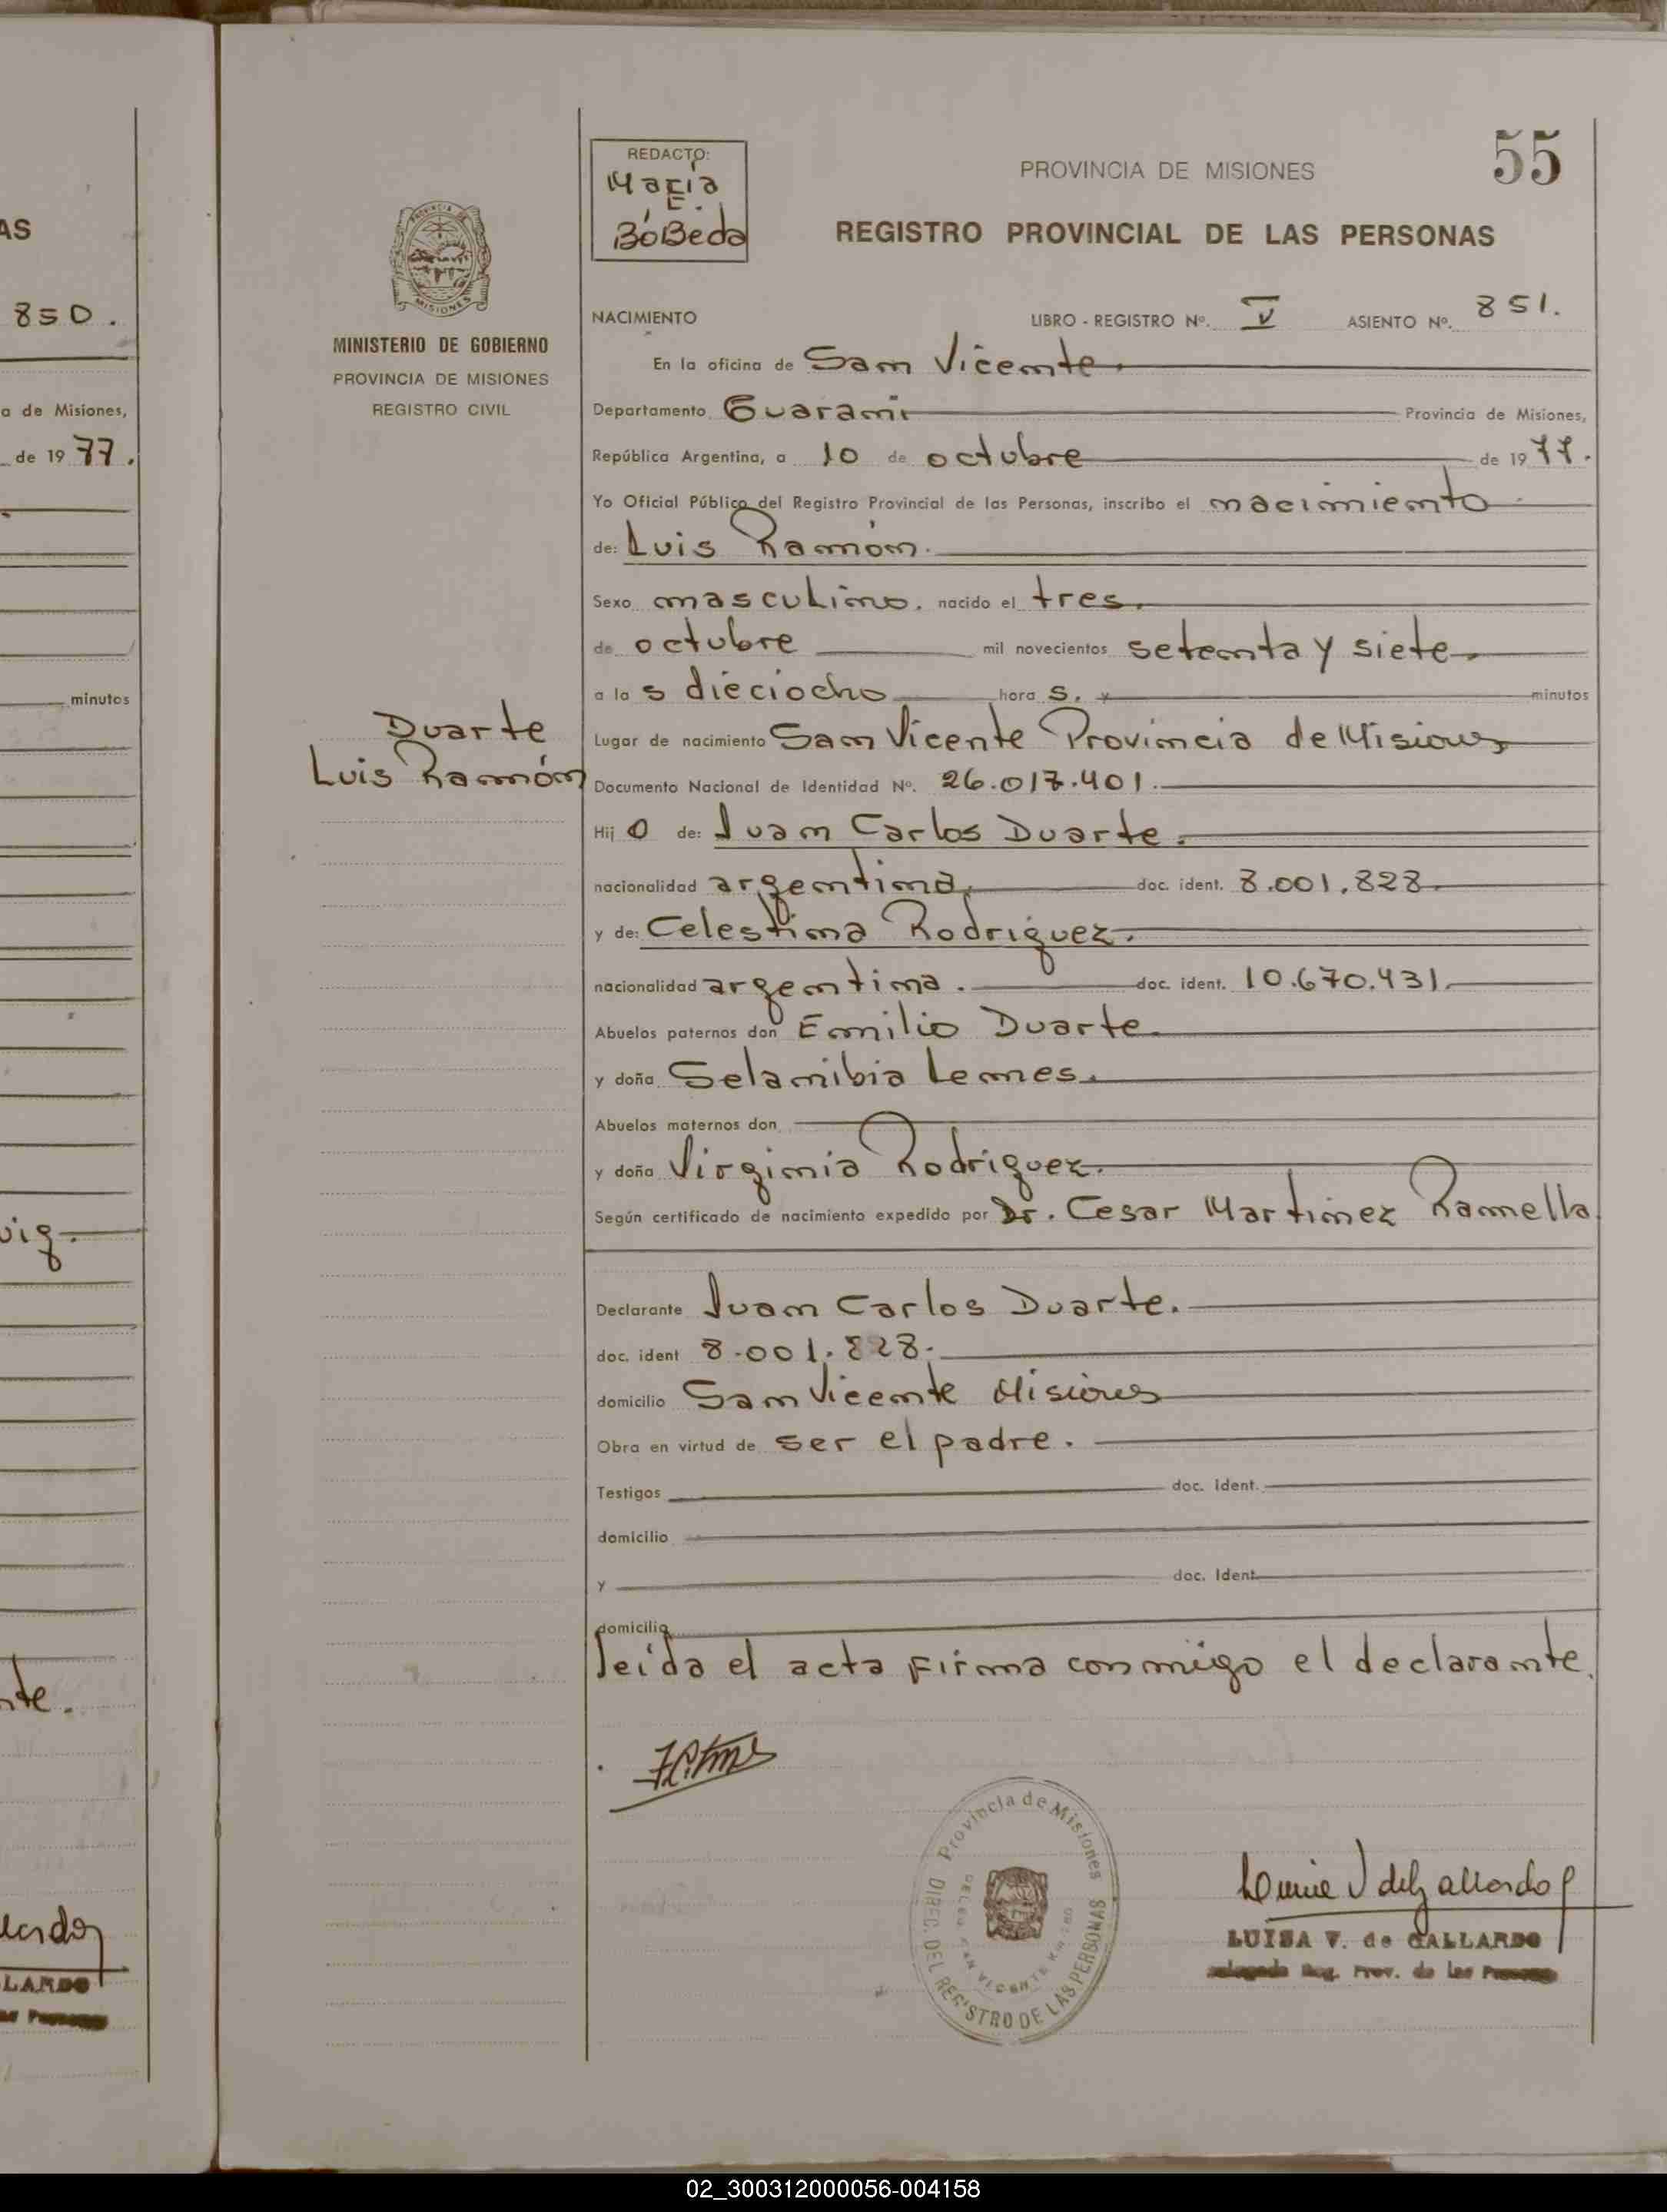 AS
850.
a de Misiones,
de 1977.
minutos
nte.
LARDO
REDACTO:
María
E.
BóBeda
PROVINCIA DE MISIONES
55
REGISTRO PROVINCIAL DE LAS PERSONAS
PROVINCIA DE
MISIONES
MINISTERIO DE GOBIERNO
PROVINCIA DE MISIONES
REGISTRO CIVIL
NACIMIENTO
LIBRO - REGISTRO Nº. V ASIENTO Nº. 851.
En la oficina de San Vicente.
Departamento Guarani Provincia de Misiones,
República Argentina, a 10 de octubre de 1977.
Yo Oficial Público del Registro Provincial de las Personas, inscribo el nacimiento
de: Luis Ramón.
Sexo masculino. nacido el tres.
de octubre mil novecientos setenta y siete.
a las dieciocho horas. y minutos
Duarte
Luis Ramón
Lugar de nacimiento San Vicente Provincia de Misiones
Documento Nacional de Identidad Nº. 26.017.401.
Hijo de: Juan Carlos Duarte.
nacionalidad argentina, doc. ident. 8.001.828.
y de: Celestina Rodriguez.
nacionalidad argentina. doc. ident. 10.670.431.
Abuelos paternos don Emilio Duarte.
y doña Selanibia Lemes.
Abuelos maternos don
y doña Virginia Rodriguez.
Según certificado de nacimiento expedido por Dr. Cesar Martinez Ramella.
Declarante Juan Carlos Duarte.
doc. ident 8.001.828.
domicilio San Vicente Misiones
Obra en virtud de ser el padre.
Testigos doc. Ident.
domicilio
y doc. Ident.
domicilio
leída el acta firma conmigo el declarante.
Provincia de Misiones
DIREC. DEL REGISTRO DE LAS PERSONAS
LUISA V. de GALLARDO
Reg. Prov. de las Personas
02_300312000056-004158